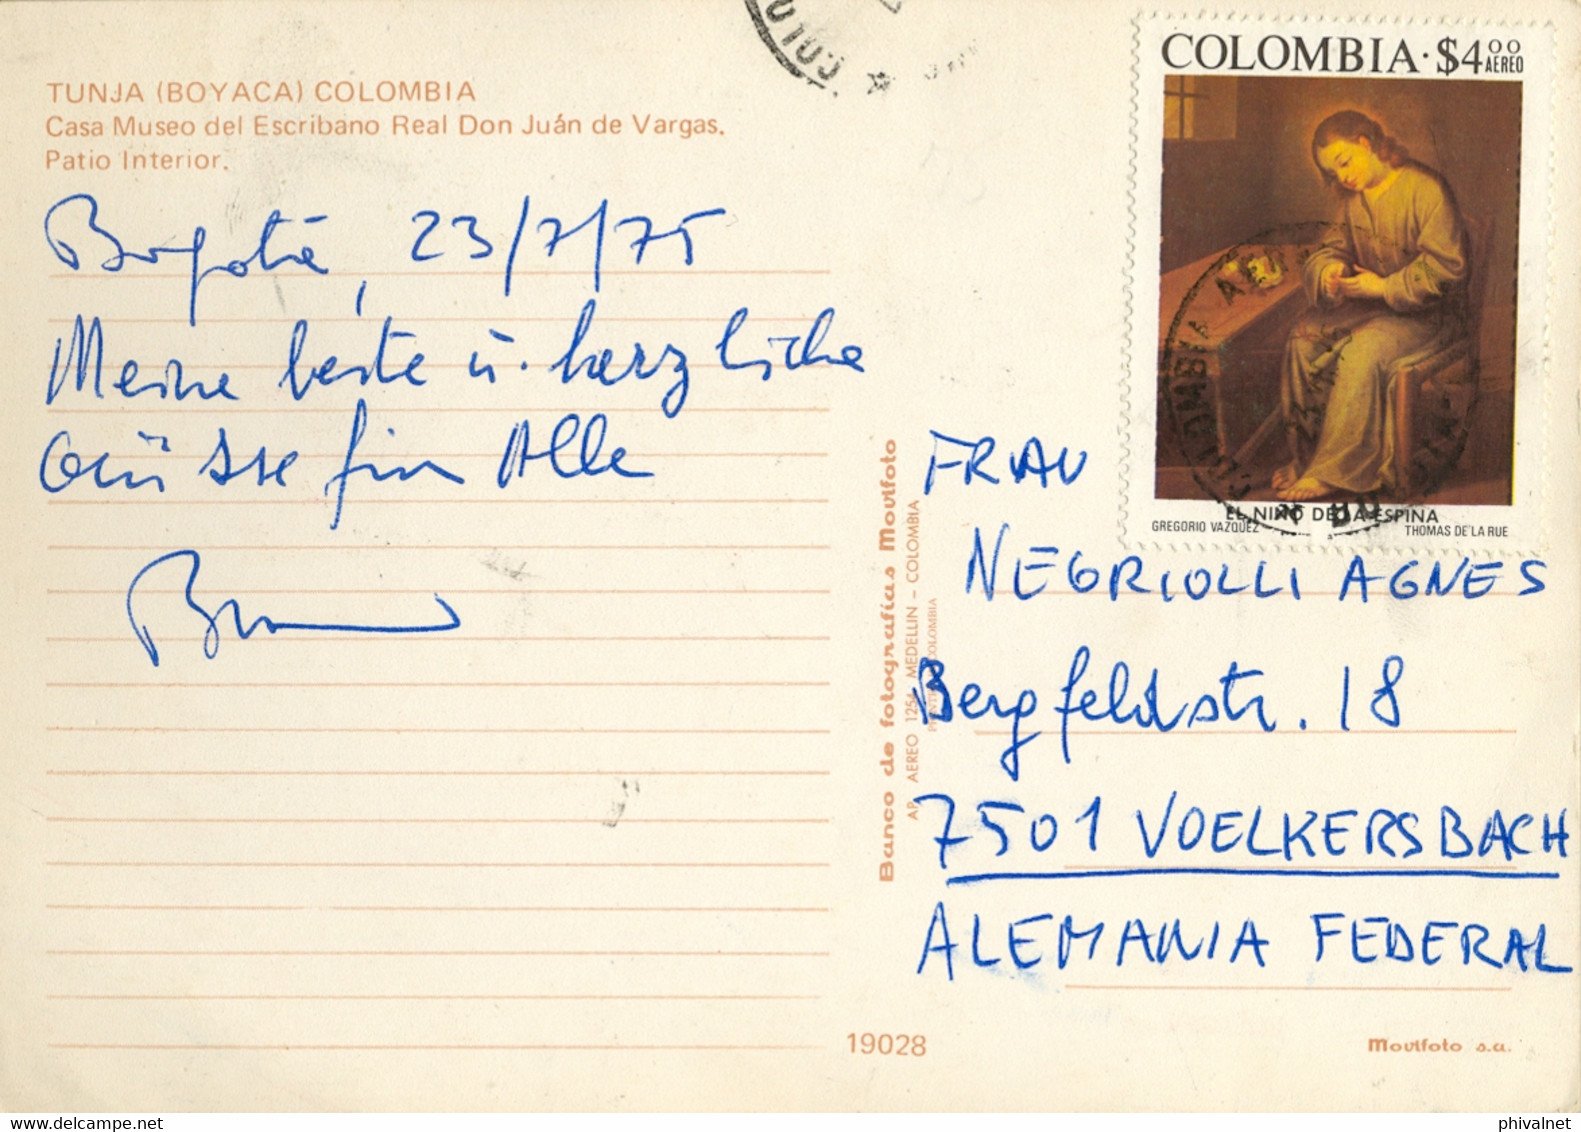 TUNJA (BOYACA) COLOMBIA
Casa Museo del Escribano Real Don Juán de Vargas.
Patio Interior.
Bogotá, 23/7/75
Meine beste u. herzliche
Grüsse für Alle
COLOMBIA · $4.00
AEREO
EL NIÑO DE LA ESPINA
GREGORIO VAZQUEZ
THOMAS DE LA RUE
FRAU
NEGRIOLLI AGNES
Bergfeldstr. 18
7501 VOELKERSBACH
ALEMANIA FEDERAL
Banco de fotografías Movifoto
AP. AEREO 1254 MEDELLIN - COLOMBIA
COLOMBIA
19028
Movifoto s.a.
phivalnet